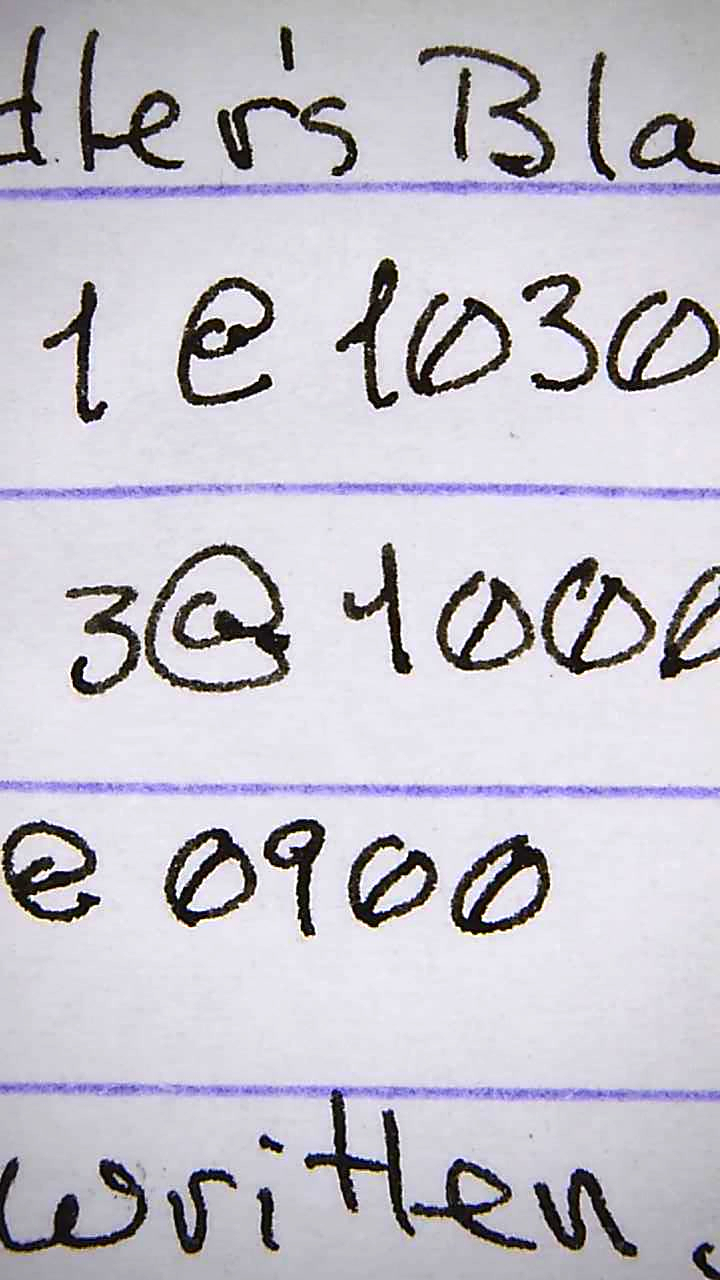 dler's Bla
1 @ 1030
3@ 1000
@ 0900
written.